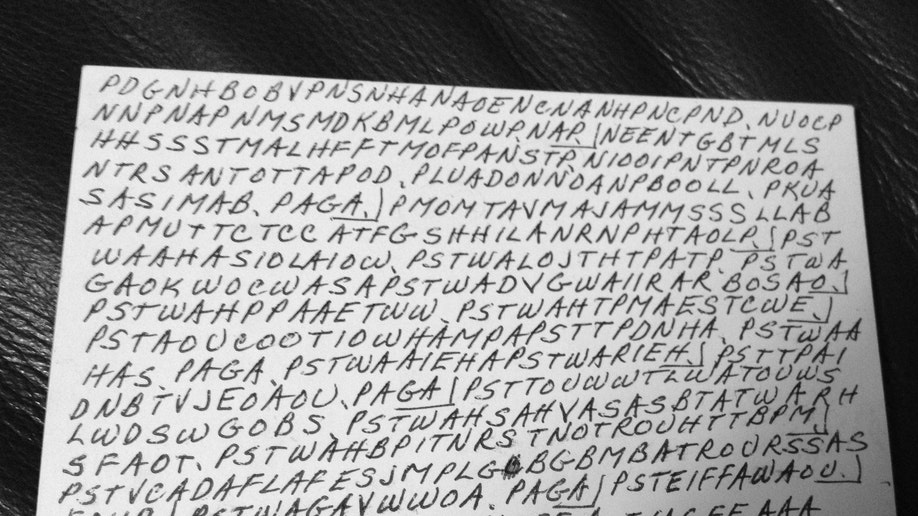 PDGNHBOBVPNSNHANAOENCNANHPNCPND. NUOCP
NNPNAPNMSMDKBMLPOWPNAP. NEENTGBTMLS
HHSSSTMALHFFTMOFPANSTP. NIOOIPNTPNROA
NTRSANTOTTAPOD. PLUADONNOANPBOOLL. PKUA
SASIMAB. PAGA. PMOMTAVMAJAMMSSSLLAB
APMUTTCTCCATFGSHHILANRNPHTAOLP. PST
WAAHASIOLAIOW. PSTWALOJTHTPATP. PSTWA
GAOKWOCWASAPSTWADVGWAIIRARBOSAO.
PSTWAHPPAAETWW. PSTWAHTPMAESTCWE.
PSTAOUCOOTIOWHAMPAPSTTPDNHA. PSTWAA
HAS. PAGA. PSTWAAIEHAPSTWARIEH. PSTTPAI
DNBTVJEOAOU. PAGA PSTTOUWWTLWATOUWS
LWDSWGOBS. PSTWAHSAHVASASBTATWARH
SFAOT. PSTWAHBPITNRSTNOTROUHTTBPM
PSTVCADAFLAFESJMPLG BGBMBATROURSSAS
PSTWAGAVWWOA. PAGA PSTEIFFAWAOU.